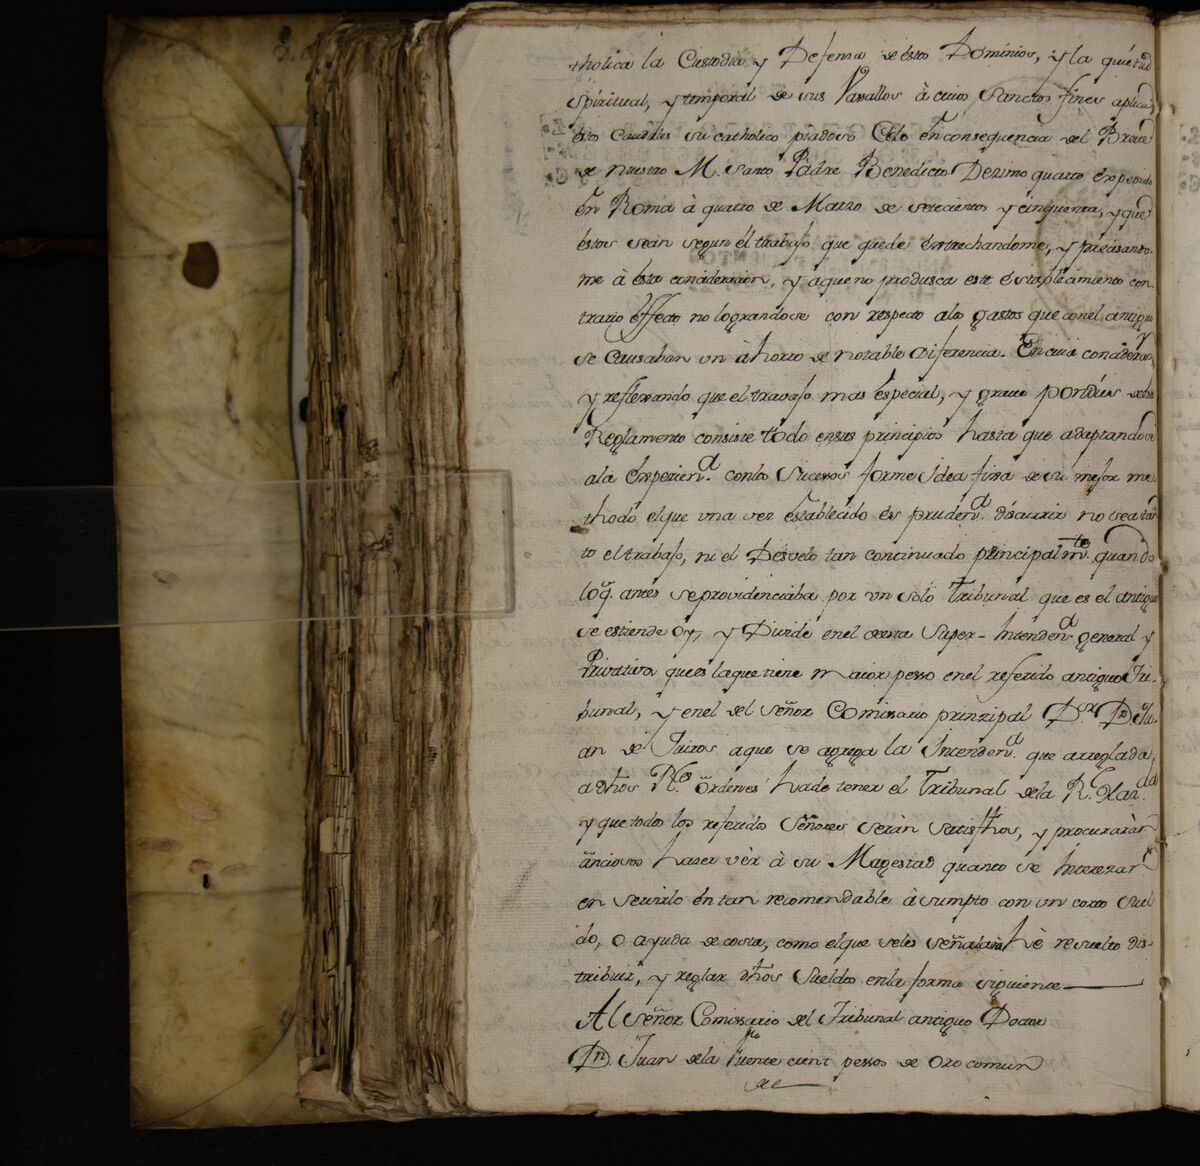 tholica la Custodia y Defensa de estos Dominios, y la quietud
Spiritual, y temporal de sus Vasallos à cuios Sanctos fines aplica
estos Caudales su catholico piadoso Celo en consequencia del Breve
de nuestro M. Santo Padre Benedicto Dezimo quarto expedido
en Roma à quatro de Marzo de setecientos y cinquenta, y que
estos sean segun él trabajo que quede estrechandome, y precisando-
me à esta concideracion, y a que no produsca este establecimiento con-
trario èffecto no lograndose con respecto a los gastos que con el antiguo
se Causaban un àhorro de notable Diferencia. En cuia concideraz.n
y reflexando que el travajo mas especial, y grave
Reglamento consiste todo en sus principios hasta que adaptandose
a la Experien.a con los Sucesos forme Idea fixa de su mejor me-
thodo el que una vez establecido es pruden.a discurrir no sea tan-
to el trabajo, ni el Desvelo tan continuado principalm.te quando
lo q. antes se providenciaba por un solo Tribunal que es el antiguo
se estiende oy, y Divide en el de esta Super-Intenden.a general y
Privativa que es la que tiene maior pesso en el referido antiguo Tri-
bunal, y en el del Señor Comissario prinzipal D.or D.n Ju-
an de a que se agrega la Intenden.a que arreglada
a dhos R.s òrdenes hade tener el Tribunal de la R.l
y que todos los referidos Señores seràn satisfhos, y procuraràn
anciosos hazer vèr à su Magestad quanto se Interezan
en servirlo en tan recomendable àsumpto con un corto Suel
do, o ayuda de costa, como el que seles señalarà hè resuelto dis-
tribuir, y reglar dhos Sueldos en la forma siguiente
Al Señor Comissario del Tribunal antiguo Doctor
D.n Juan de la Fuente cient pessos de Oro comun